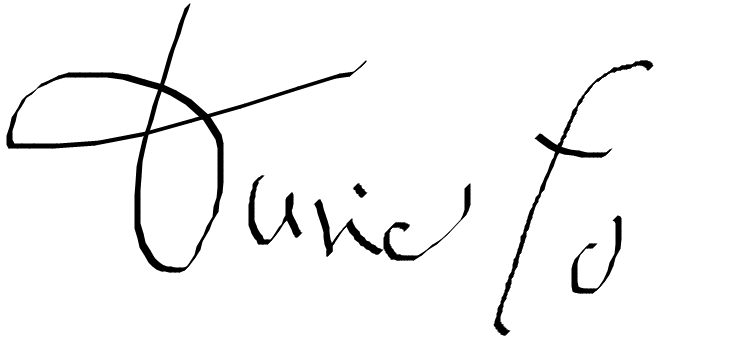 Dario Fo